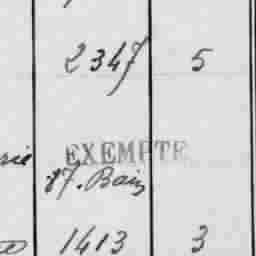 2347 5
EXEMPTE
17. Bain
1413 3